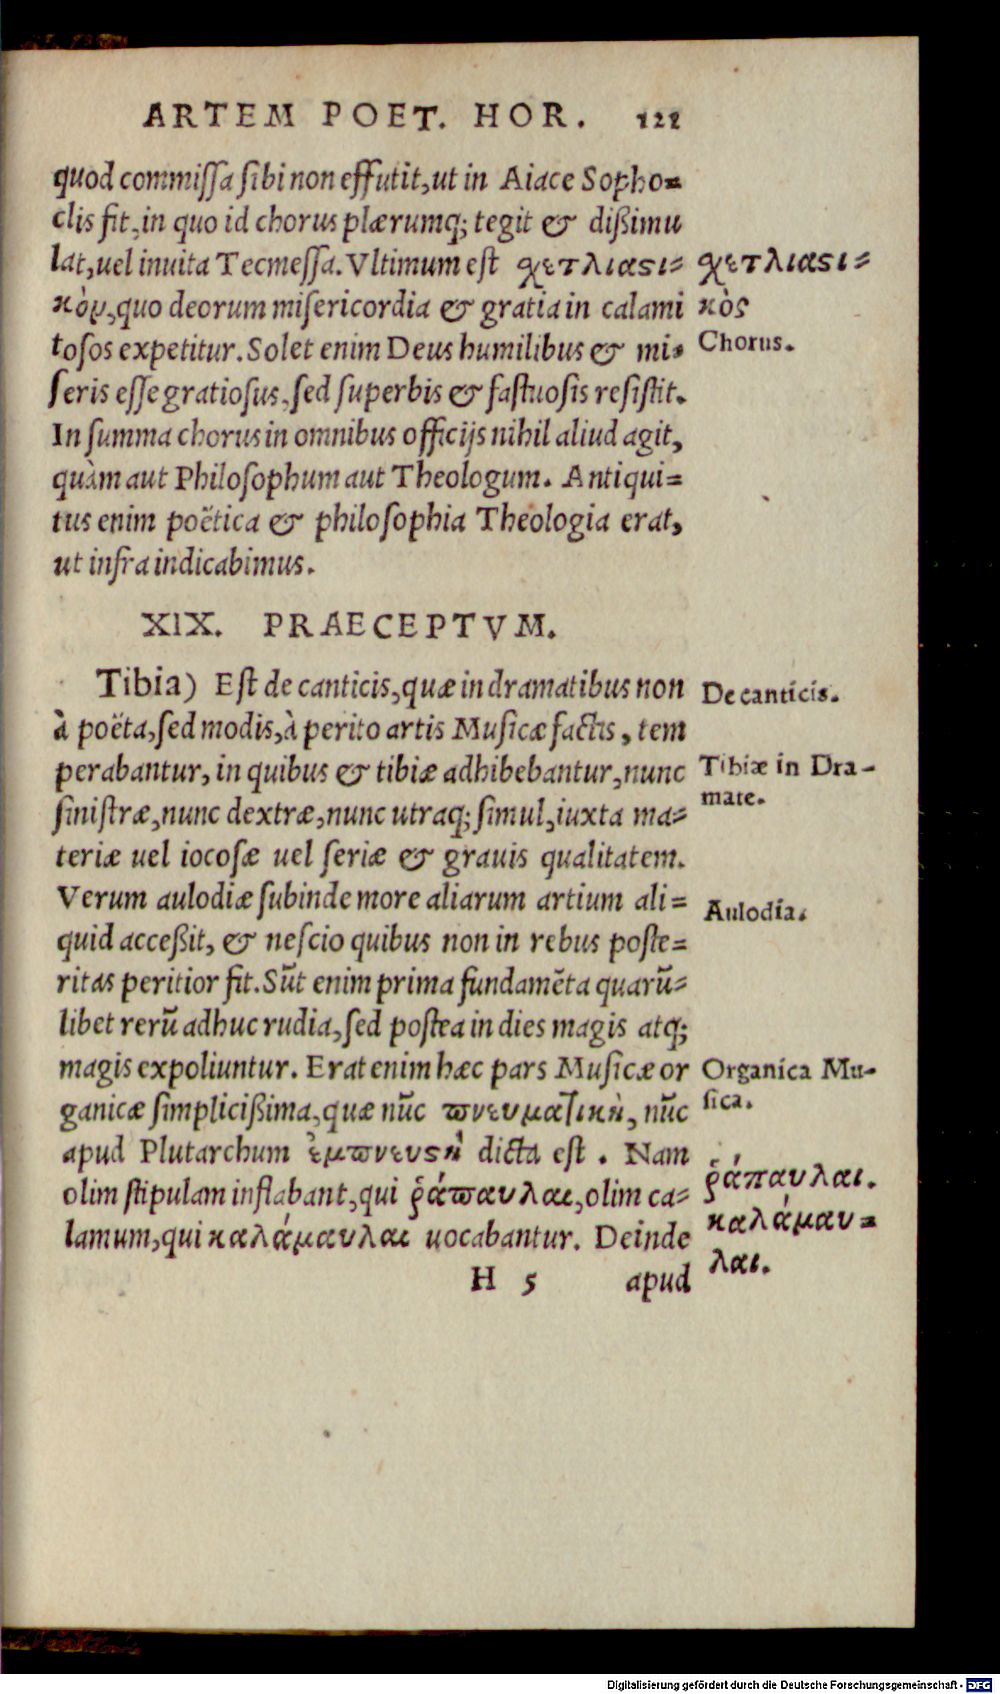 ARTEM POET. HOR. 121
quod commissa sibi non effutit, ut in Aiace Sopho=
clis fit, in quo id chorus plærumq; tegit & dißimu
lat, uel inuita Tecmessa. Vltimum est σχετλιαστι=
κὸν, quo deorum misericordia & gratia in calami
tosos expetitur. Solet enim Deus humilibus & mi=
seris esse gratiosus, sed superbis & fastuosis resistit.
In summa chorus in omnibus officijs nihil aliud agit,
quàm aut Philosophum aut Theologum. Antiqui=
tus enim poëtica & philosophia Theologia erat,
ut infra indicabimus.
σχετλιαστι=
κὸς
Chorus.
XIX. PRAECEPTVM.
Tibia) Est de canticis, quæ in dramatibus non
à poëta, sed modis, à perito artis Musicæ factis, tem
perabantur, in quibus & tibiæ adhibebantur, nunc
sinistræ, nunc dextræ, nunc utraq; simul, iuxta ma=
teriæ uel iocosæ uel seriæ & grauis qualitatem.
Verum aulodiæ subinde more aliarum artium ali=
quid acceßit, & nescio quibus non in rebus poste=
ritas peritior fit. Sūt enim prima fundamēta quarū=
libet rerū adhuc rudia, sed postea in dies magis atq;
magis expoliuntur. Erat enim hæc pars Musicæ or
ganicæ simplicißima, quæ nūc πνευματικὴ, nūc
apud Plutarchum ἐμπνευστὴ dicta est. Nam
olim stipulam inflabant, qui ῥάπαυλαι, olim ca=
lamum, qui καλάμαυλαι uocabantur. Deinde
De canticis.
Tibiæ in Dra-
mate.
Aulodia.
Organica Mu-
sica.
ῥάπαυλαι.
καλάμαυ=
λαι.
H 5 apud
Digitalisierung gefördert durch die Deutsche Forschungsgemeinschaft - DFG